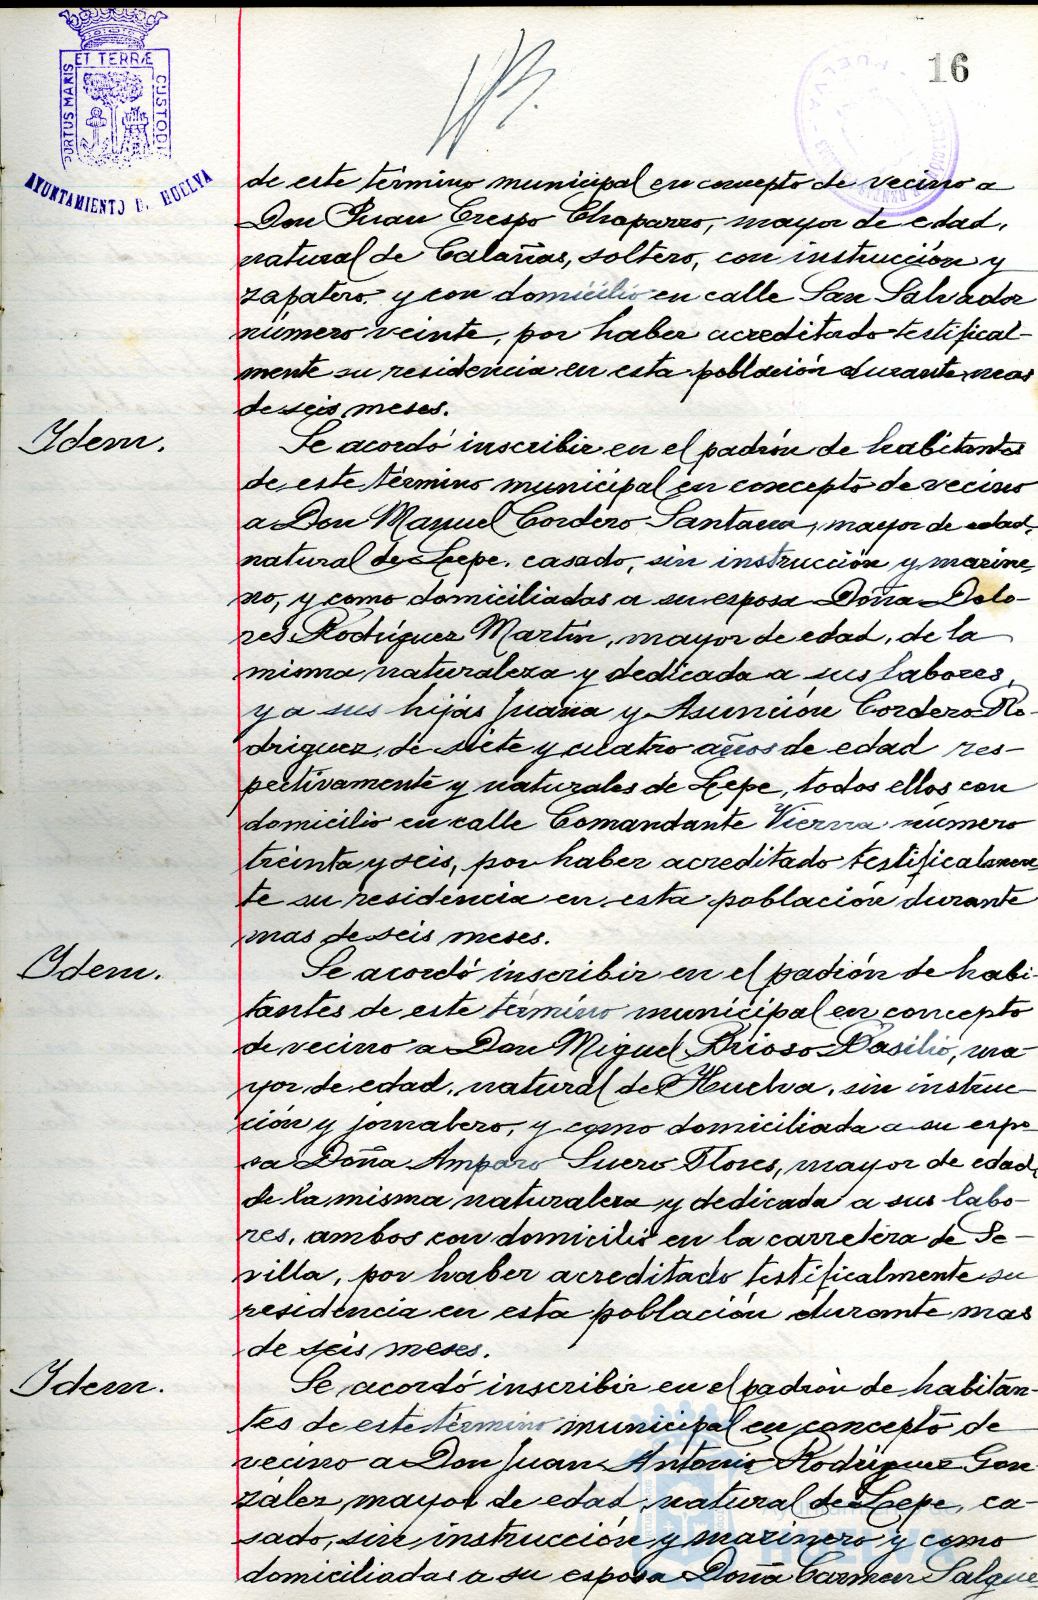 16
PORTUS MARIS ET TERRÆ CUSTODI
AYUNTAMIENTO D. HUELVA
de este término municipal en concepto de vecino a
Don Juan Crespo Chaparro, mayor de edad,
natural de Calañas, soltero, con instrucción y
zapatero y con domicilio en calle San Salvador
número veinte, por haber acreditado testifical-
mente su residencia en esta población durante mas
de seis meses.
Idem.
Se acordó inscribir en el padrón de habitantes
de este término municipal en concepto de vecino
a Don Manuel Cordero Santana, mayor de edad,
natural de Lepe, casado, sin instrucción y marine-
ro, y como domiciliadas a su esposa Doña Dolo-
res Rodríguez Martín, mayor de edad, de la
misma naturaleza y dedicada a sus labores,
y a sus hijas Juana y Asunción Cordero Ro-
driguez, de siete y cuatro años de edad res-
pectivamente y naturales de Lepe, todos ellos con
domicilio en calle Comandante Vierna número
treinta y seis, por haber acreditado testificalmen-
te su residencia en esta población durante
mas de seis meses.
Idem.
Se acordó inscribir en el padrón de habi-
tantes de este término municipal en concepto
de vecino a Don Miguel Brioso Basilio, ma-
yor de edad, natural de Huelva, sin instruc-
ción y jornalero, y como domiciliada a su espo-
sa Doña Amparo Suero Flores, mayor de edad,
de la misma naturaleza y dedicada a sus labo-
res, ambos con domicilio en la carretera de Se-
villa, por haber acreditado testificalmente su
residencia en esta población durante mas
de seis meses.
Idem.
Se acordó inscribir en el padrón de habitan-
tes de este término municipal en concepto de
vecino a Don Juan Antonio Rodríguez Gon-
zález, mayor de edad, natural de Lepe, ca-
sado, sin instrucción y marinero y como
domiciliadas a su esposa Doña Carmen Salgue-
Ayuntamiento de
HUELVA